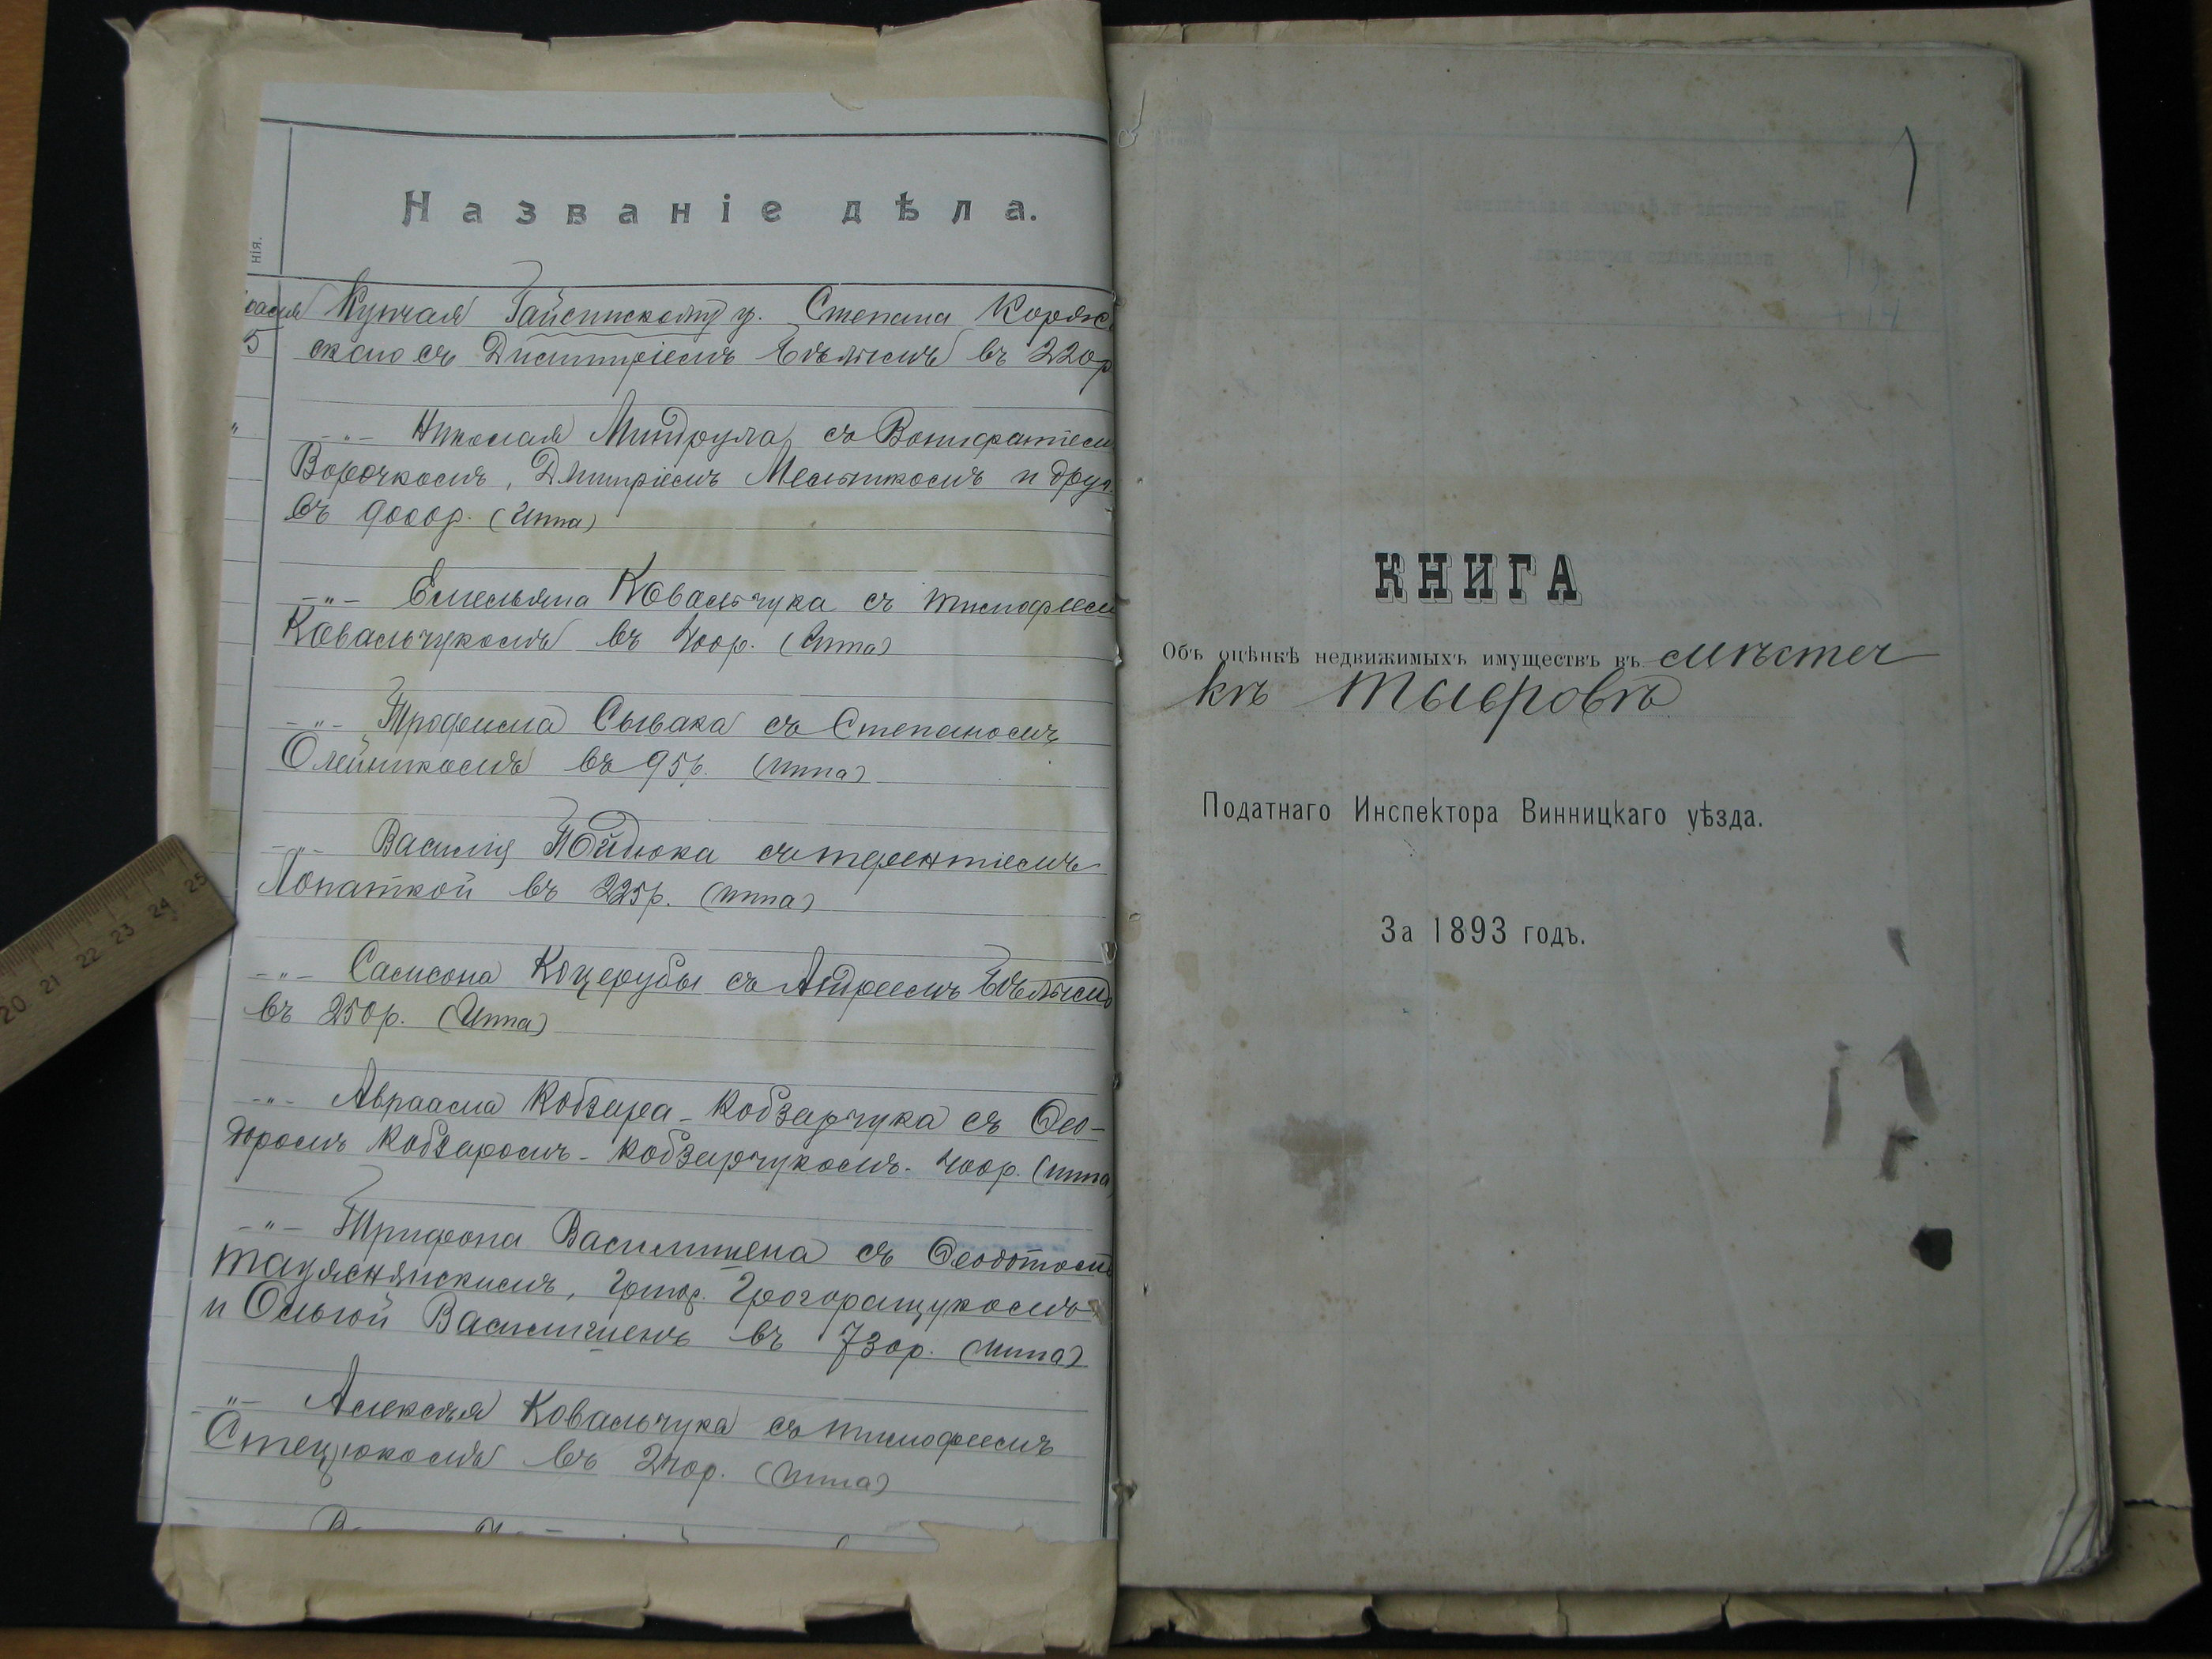 Названіе дѣла.
нія.
Купчая Гайсинскому у. Степана Корже
скаго съ Дмитріемъ Бѣлымъ въ 220р
5
-"- Николая Миндрула, съ Вонифатіем
Дмитріемъ Мельникомъ и друг.
въ 9000р. (Ипп)
-"- Емельяна Ковальчука съ Тимофеем
Ковальчукомъ въ 400р. (Ипп)
-"- Трофима Сывака съ Степаномъ
Олейникомъ въ 95р. (ипп)
-"- Василія съ Терентіемъ
Лопаткой въ 225р. (ипп)
-"- Самсона Коцерубы съ Андреемъ Бѣлымъ
въ 250р. (Ипп)
-"- Авраама Кобзара-Кобзарчука съ Ѳео-
доромъ Кобзаромъ-Кобзарчукомъ. 400р. (ипп
-"- Трифона Василишена съ Ѳедотомъ
Григор. Григоращукомъ
и Ольгой Василишенъ въ 730р. (ипп)
-"- Алексѣя Ковальчука съ Тимофеемъ
Стецюкомъ въ 240р. (ипп)
20 21 22 23 24 25
1
КНИГА
Объ оцѣнкѣ недвижимыхъ имуществъ въ мѣстеч
кѣ Тывровѣ
Податнаго Инспектора Винницкаго уѣзда.
За 1893 годъ.